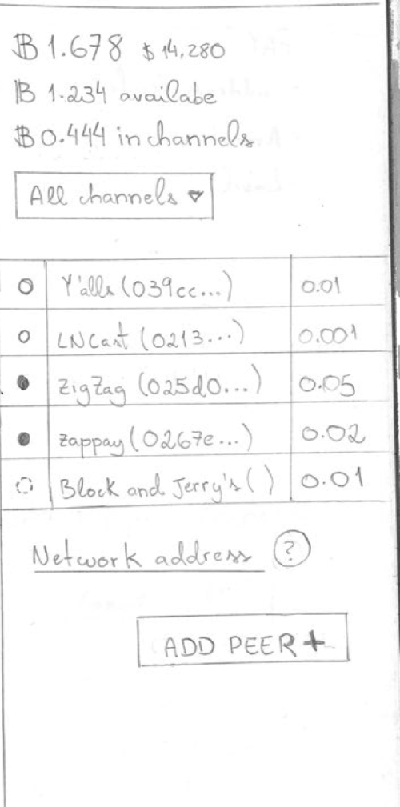 ₿ 1.678 $ 14.280
₿ 1.234 availabe
₿ 0.444 in channels
All channels ▾
Y'alls (039cc...) 0.01
LNCast (0213...) 0.001
ZigZag (025d0...) 0.05
Zappay (0267e...) 0.02
Block and Jerry's () 0.01
Network address ?
ADD PEER +